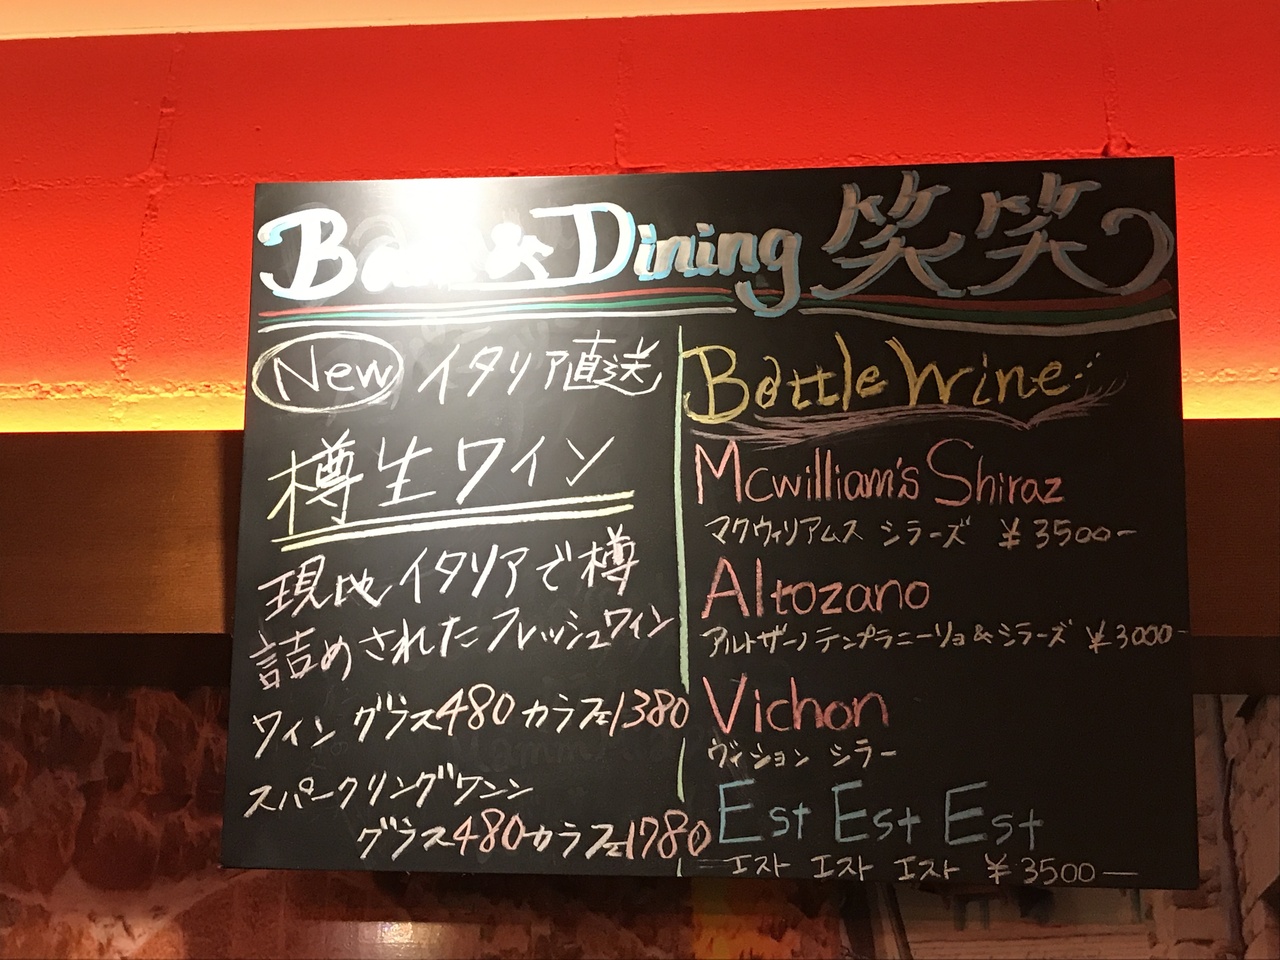 Dining 笑笑
New イタリア直送
樽生ワイン
現地イタリアで樽
詰めされたフレッシュワイン
ワイン グラス480 カラフェ1380
スパークリングワイン
グラス480 カラフェ1780
Bottle Wine
Mcwilliam's Shiraz
マクウィリアムス シラーズ ¥3500-
Altozano
アルトザーノ テンプラニーリョ&シラーズ ¥3000-
Vichon
ヴィション シラー
Est Est Est
エスト エスト エスト ¥3500-